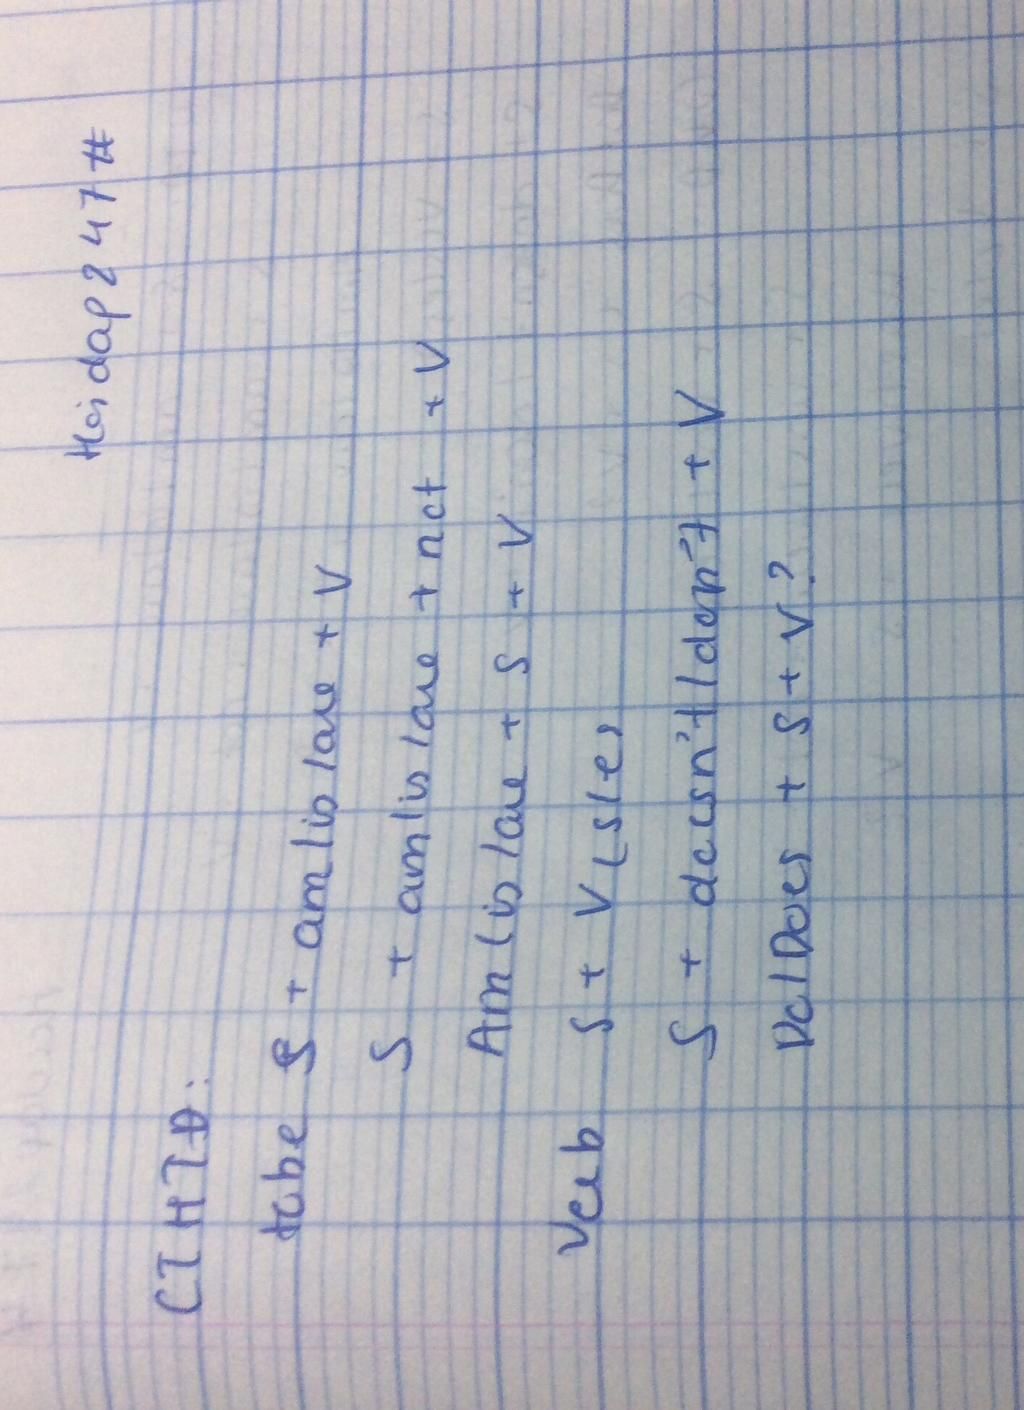 Hoidap247#
CTHTĐ:
tobe S + am/is/are + V
S + am/is/are + not + V
Am/is/are + S + V
Verb S + V(s/es)
S + doesn't/don't + V
Do/Does + S + V?